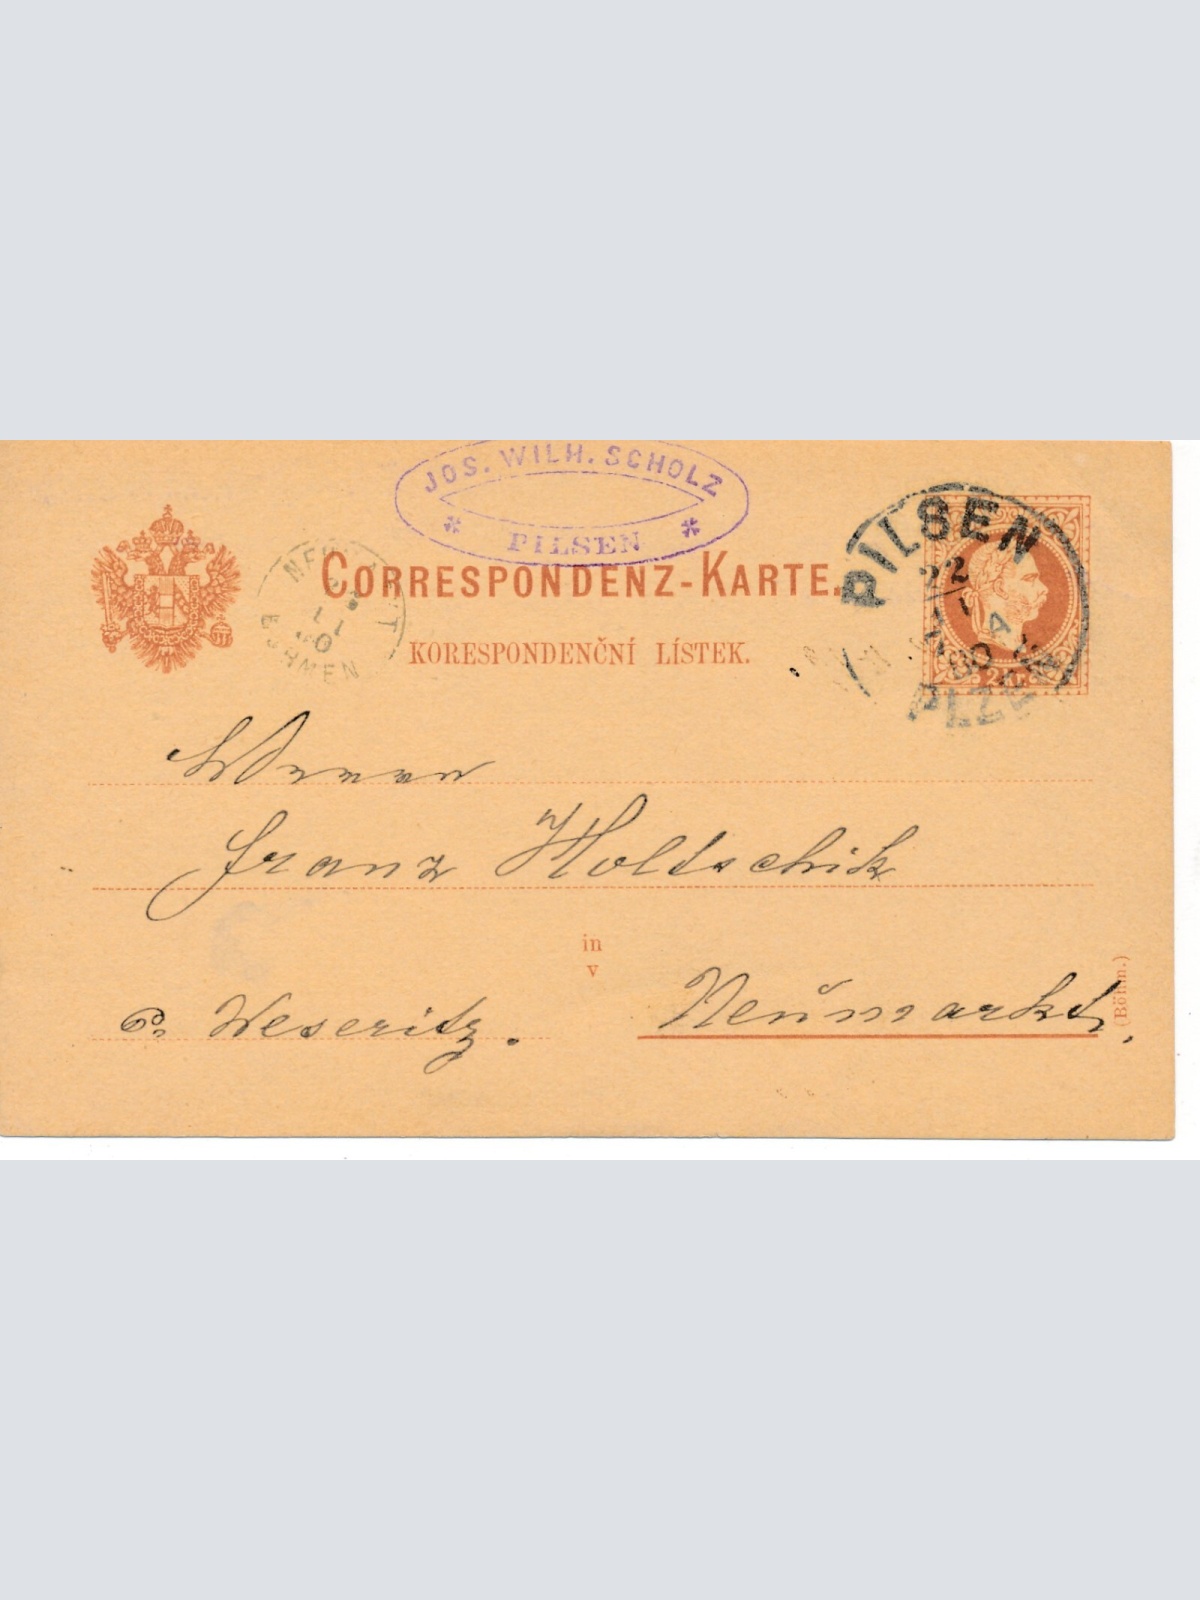 JOS. WILH. SCHOLZ
PILSEN
CORRESPONDENZ-KARTE.
KORESPONDENČNÍ LÍSTEK.
PILSEN
22
1
80
PLZEŇ
2 Kr.
BÖHMEN
Herrn
Franz Holtschik
in
v
P. Weseritz.
Neumarkt.
(Böhm.)